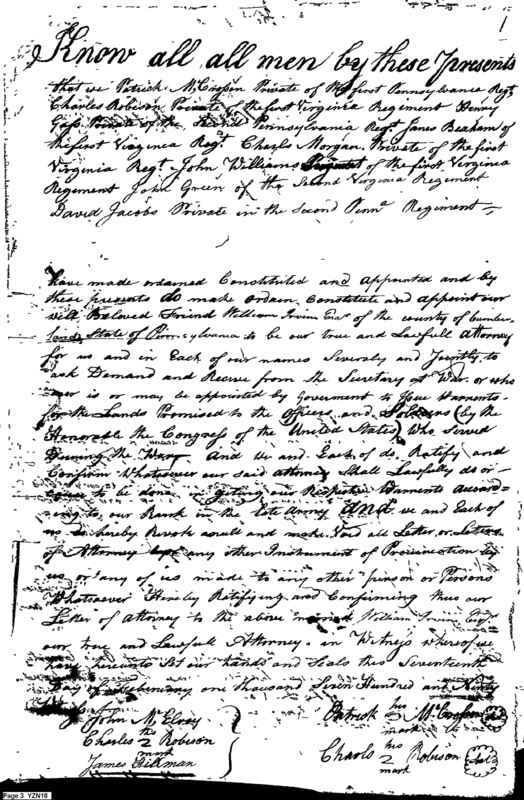 Know all all men by these presents
that we Patrick McCroson Private of the first Pennsylvania Regt
Charles Robison Private of the first Virginia Regiment Henry
Private of the Pennsylvania Regt James Beaham of
the first Virginia Regt Charls Morgan. Private of the first
Virginia Regt John Williams of the first Virginia
Regement John Green of the Second Virginia Regiment
David Jacobs Private in the Second Penna Regiment
have made ordained Constituted and appointed and by
these presents do make ordain Constitute and appoint our
well Beloved Friend William Irvin Esqr of the county of Cumber
land State of Pennsylvania to be our true and Lawfull Attorney
for us and in Each of our names Severaly and Jointly, to
ask Demand and Receive from the Secretary at War. or who
ever is or may be appointed by Government to Issue Warrents
for the Lands Promised to the Officers and Soldiers (by the
Honorable the Congress of the United States) Who Served
During the War. And we and Each of do. Ratify and
Confirm Whatsoever our said attorney Shall Lawfully do or
cause to be done in geting our Respective Warrents accord
ing to our Rank in the late Army And we and Each of
us do hereby Revoke and make Void all Letter, or Letters
of Attorney any other Instrument of by
us or any of us made to any other person or Persons
Whatsoever Hereby Ratifying and Confirming thus our
Letter of attorney to the above William Irvin Esqr
our true and Lawfull Attorney. in Witness whereof we
have Set our hands and Seals this Seventeenth
Day of one thousand Seven Hundred and Ninty
John McElroy Patrick his McCroson
mark
Charles his 2 mark Robison Charls his 2 mark Robison Seal
James Hillman
Page 3 YZN18